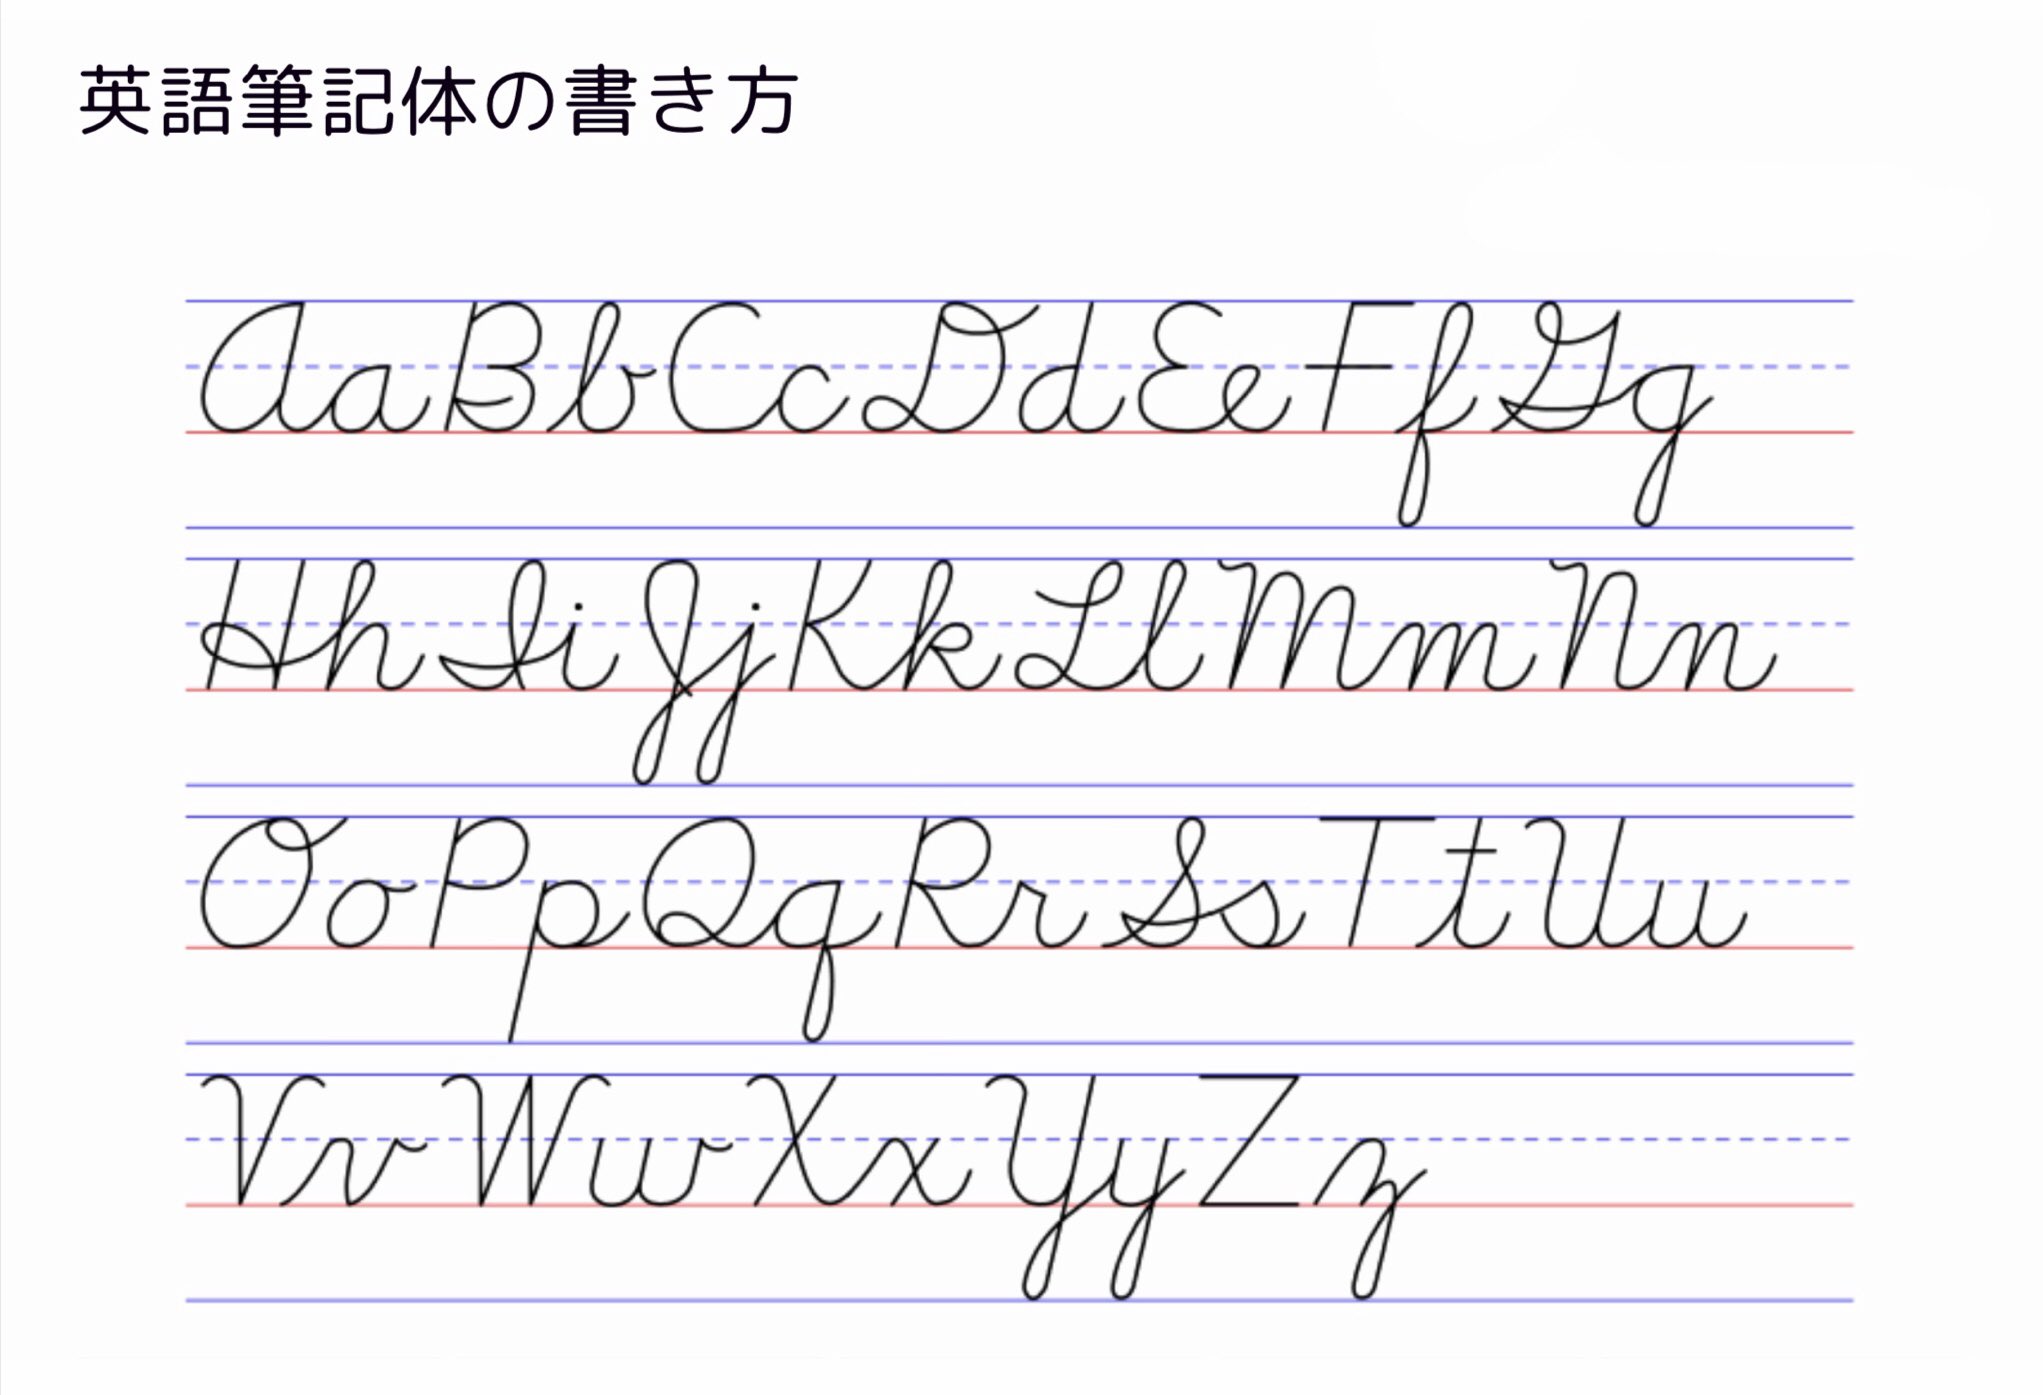 英語筆記体の書き方
Aa Bb Cc Dd Ee Ff Gg
Hh Ii Jj Kk Ll Mm Nn
Oo Pp Qq Rr Ss Tt Uu
Vv Ww Xx Yy Zz